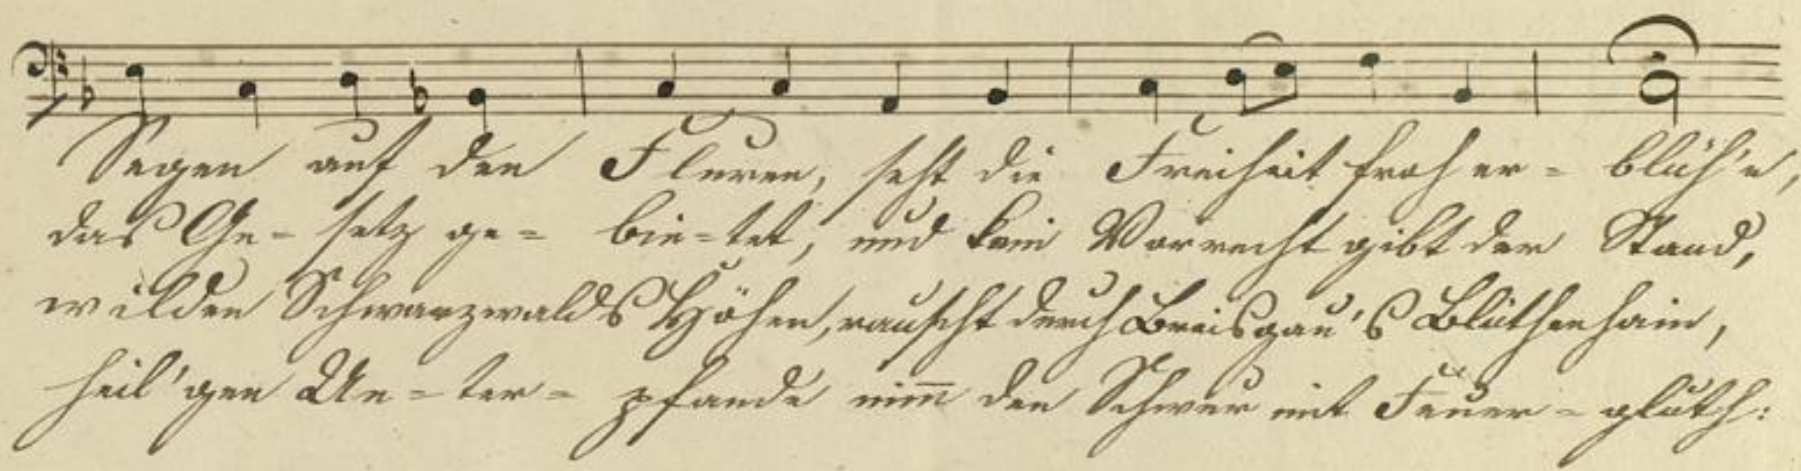 Segen auf den Fluren, seht die Freiheit froh er- blüh'n,
das Ge- setz ge- bie-tet, und kein Vorrecht gibt der Stand,
wilden Schwarzwalds Höhen, rauscht durch Breisgau's Blüthenhain,
heil'gen Un-ter- pfande nim̅ den Schwur mit Feuer- gluth: